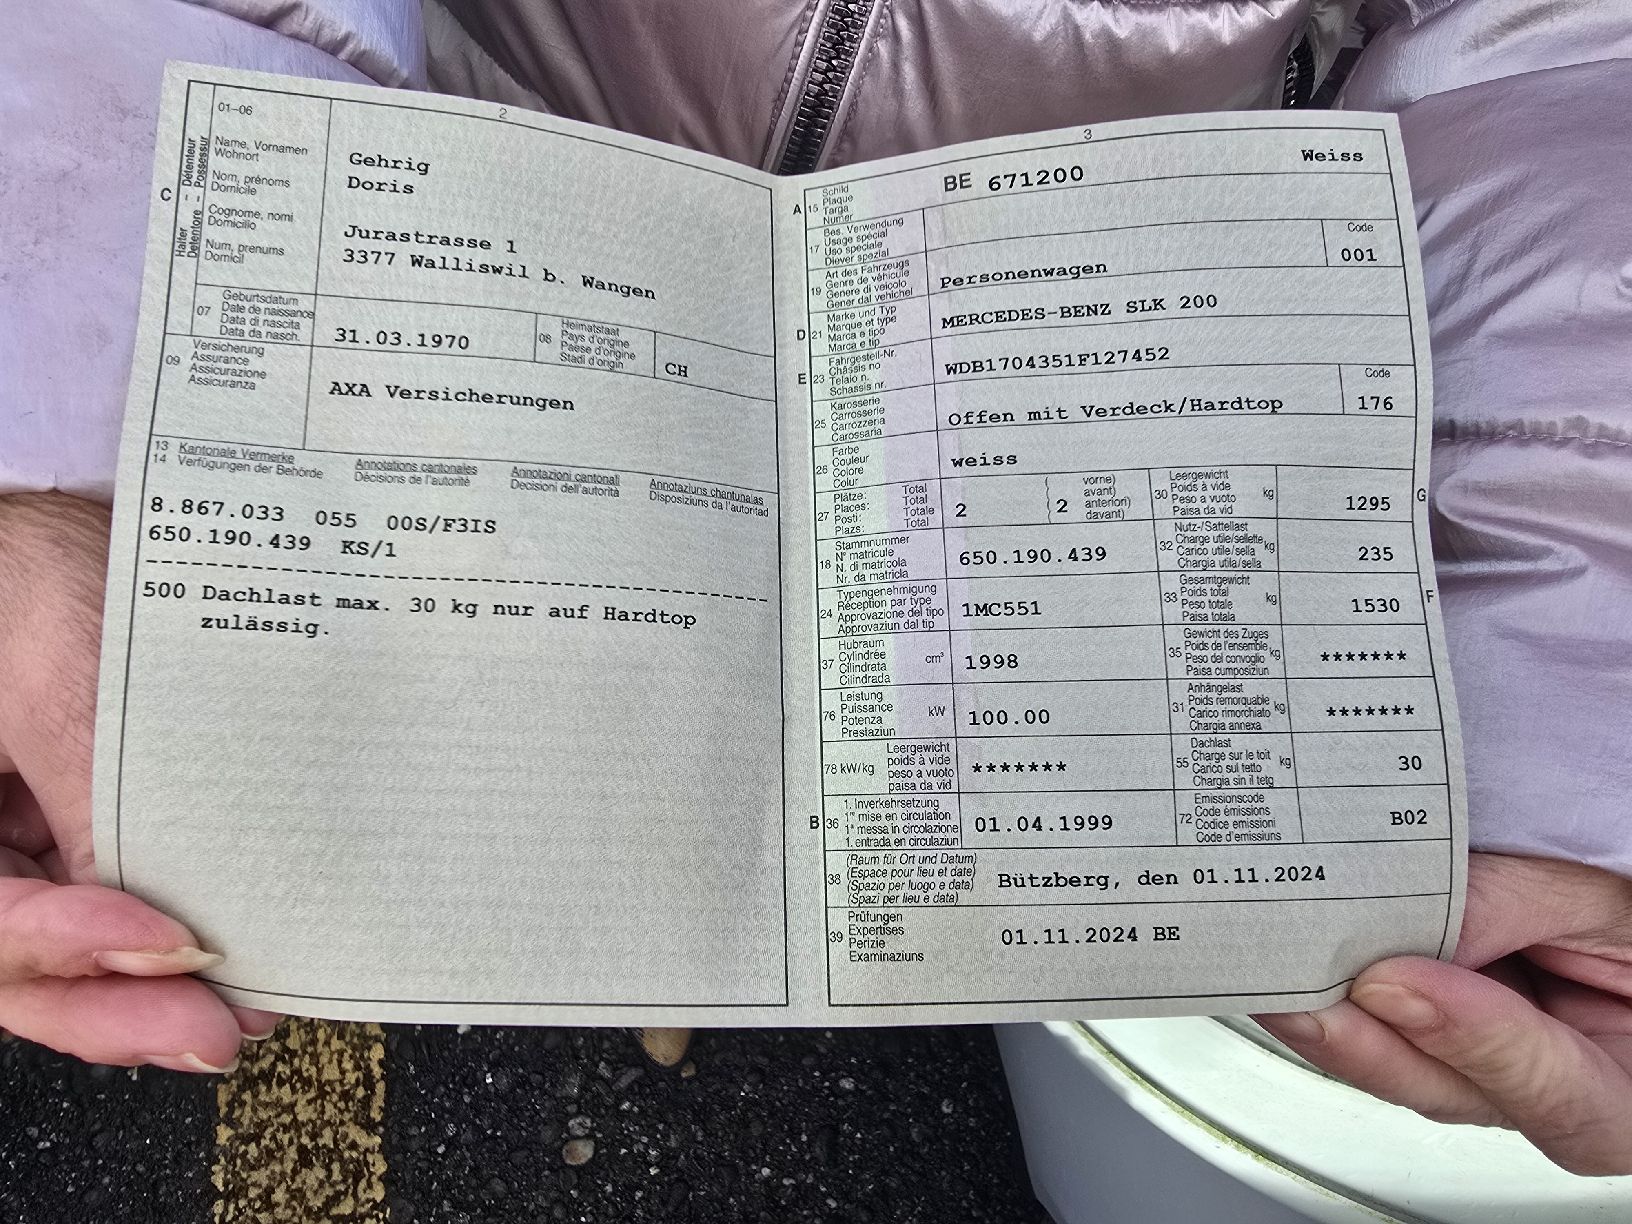 2
01-06
C
Halter Détenteur
Detentore Possessur
Name, Vornamen
Wohnort
Nom, prénoms
Domicile
Cognome, nomi
Domicilio
Num, prenums
Domicil
Gehrig
Doris
Jurastrasse 1
3377 Walliswil b. Wangen
07
Geburtsdatum
Date de naissance
Data di nascita
Data da nasch.
31.03.1970
08
Heimatstaat
Pays d'origine
Paese d'origine
Stadi d'origin
CH
09
Versicherung
Assurance
Assicurazione
Assicuranza
AXA Versicherungen
13 Kantonale Vermerke
14 Verfügungen der Behörde
Annotations cantonales
Décisions de l'autorité
Annotazioni cantonali
Decisioni dell'autorità
Annotaziuns chantunalas
Disposiziuns da l'autoritad
8.867.033 055 00S/F3IS
650.190.439 KS/1
500 Dachlast max. 30 kg nur auf Hardtop
zulässig.
3
A 15
Schild
Plaque
Targa
Numer
BE 671200
Weiss
17
Bes. Verwendung
Usage spécial
Uso speciale
Diever spezial
19
Art des Fahrzeugs
Genre de véhicule
Genere di veicolo
Gener dal vehichel
Personenwagen
Code
001
D 21
Marke und Typ
Marque et type
Marca e tipo
Marca e tip
MERCEDES-BENZ SLK 200
E 23
Fahrgestell-Nr.
Châssis no
Telaio n.
Schassis nr.
WDB1704351F127452
25
Karosserie
Carrosserie
Carrozzeria
Carossaria
Offen mit Verdeck/Hardtop
Code
176
26
Farbe
Couleur
Colore
Colur
weiss
27
Plätze: Total
Places: Total
Posti: Totale
Plazs: Total
2
2
vorne)
avant)
anteriori)
davant)
30
Leergewicht
Poids à vide
Peso a vuoto
Paisa da vid
kg
1295
G
18
Stammnummer
N° matricule
N. di matricola
Nr. da matricla
650.190.439
32
Nutz-/Sattellast
Charge utile/sellette
Carico utile/sella
Chargia utila/sella
kg
235
24
Typengenehmigung
Réception par type
Approvazione del tipo
Approvaziun dal tip
1MC551
33
Gesamtgewicht
Poids total
Peso totale
Paisa totala
kg
1530
F
37
Hubraum
Cylindrée
Cilindrata
Cilindrada
cm³
1998
35
Gewicht des Zuges
Poids de l'ensemble
Peso del convoglio
Paisa cumposiziun
kg
*******
76
Leistung
Puissance
Potenza
Prestaziun
kW
100.00
31
Anhängelast
Poids remorquable
Carico rimorchiato
Chargia annexa
kg
*******
78 kW/kg
Leergewicht
poids à vide
peso a vuoto
paisa da vid
*******
55
Dachlast
Charge sur le toit
Carico sul tetto
Chargia sin il tetg
kg
30
B 36
1. Inverkehrsetzung
1re mise en circulation
1a messa in circolazione
1. entrada en circulaziun
01.04.1999
72
Emissionscode
Code émissions
Codice emissioni
Code d'emissiuns
B02
38
(Raum für Ort und Datum)
(Espace pour lieu et date)
(Spazio per luogo e data)
(Spazi per lieu e data)
Bützberg, den 01.11.2024
39
Prüfungen
Expertises
Perizie
Examinaziuns
01.11.2024 BE